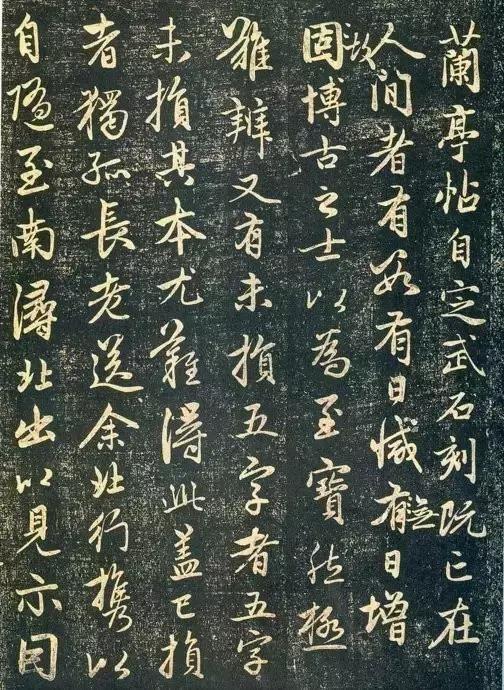 蘭亭帖自定武石刻既亡在
人間者有數有日減有無日增
固故博古之士以為至寶然極
難辨又有未損五字者五字
未損其本尤難得此蓋已損
者獨孤長老送余北行携以
自隨至南潯北出以見示因